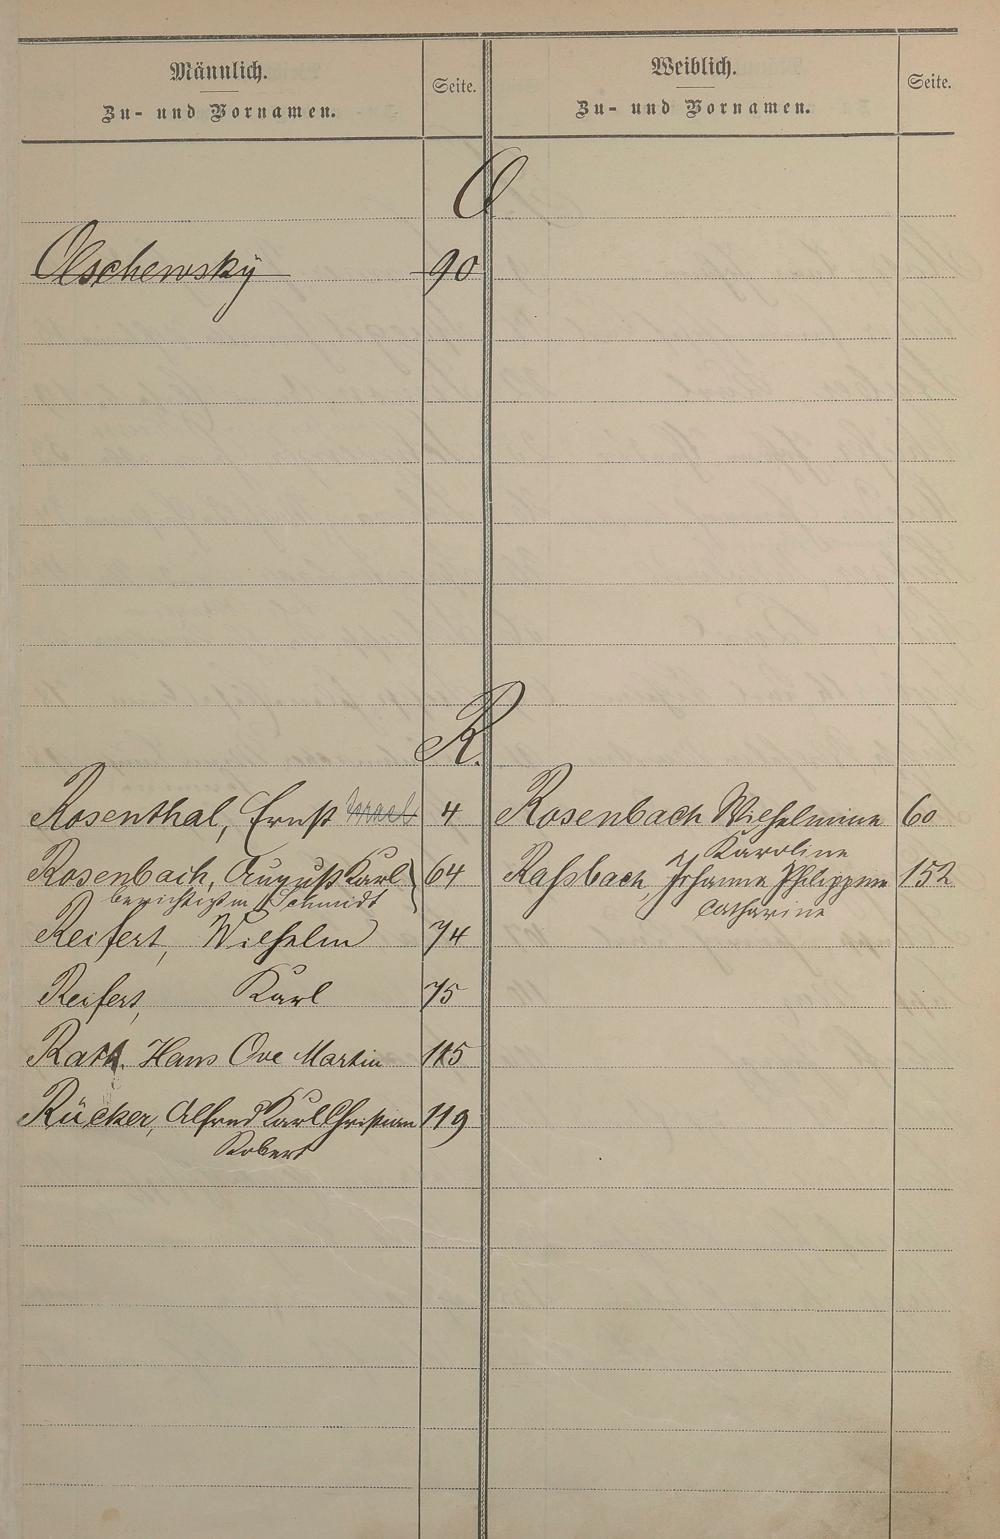 Männlich.
Zu- und Vornamen.
Seite.
Weiblich.
Zu- und Vornamen.
Seite.
O
Olschewsky 90
R.
Rosenthal, Ernst Israel 4
Rosenbach, August Karl 64
berichtigt in Schmidt
Reifert, Wilhelm 74
Reifert, Karl 75
Hans Ove Martin 115
Rücker, Alfred Karl Christian 119
Robert
Rosenbach Wilhelmine 60
Karoline
Raßbach, Johanna Philippine 152
Catharine